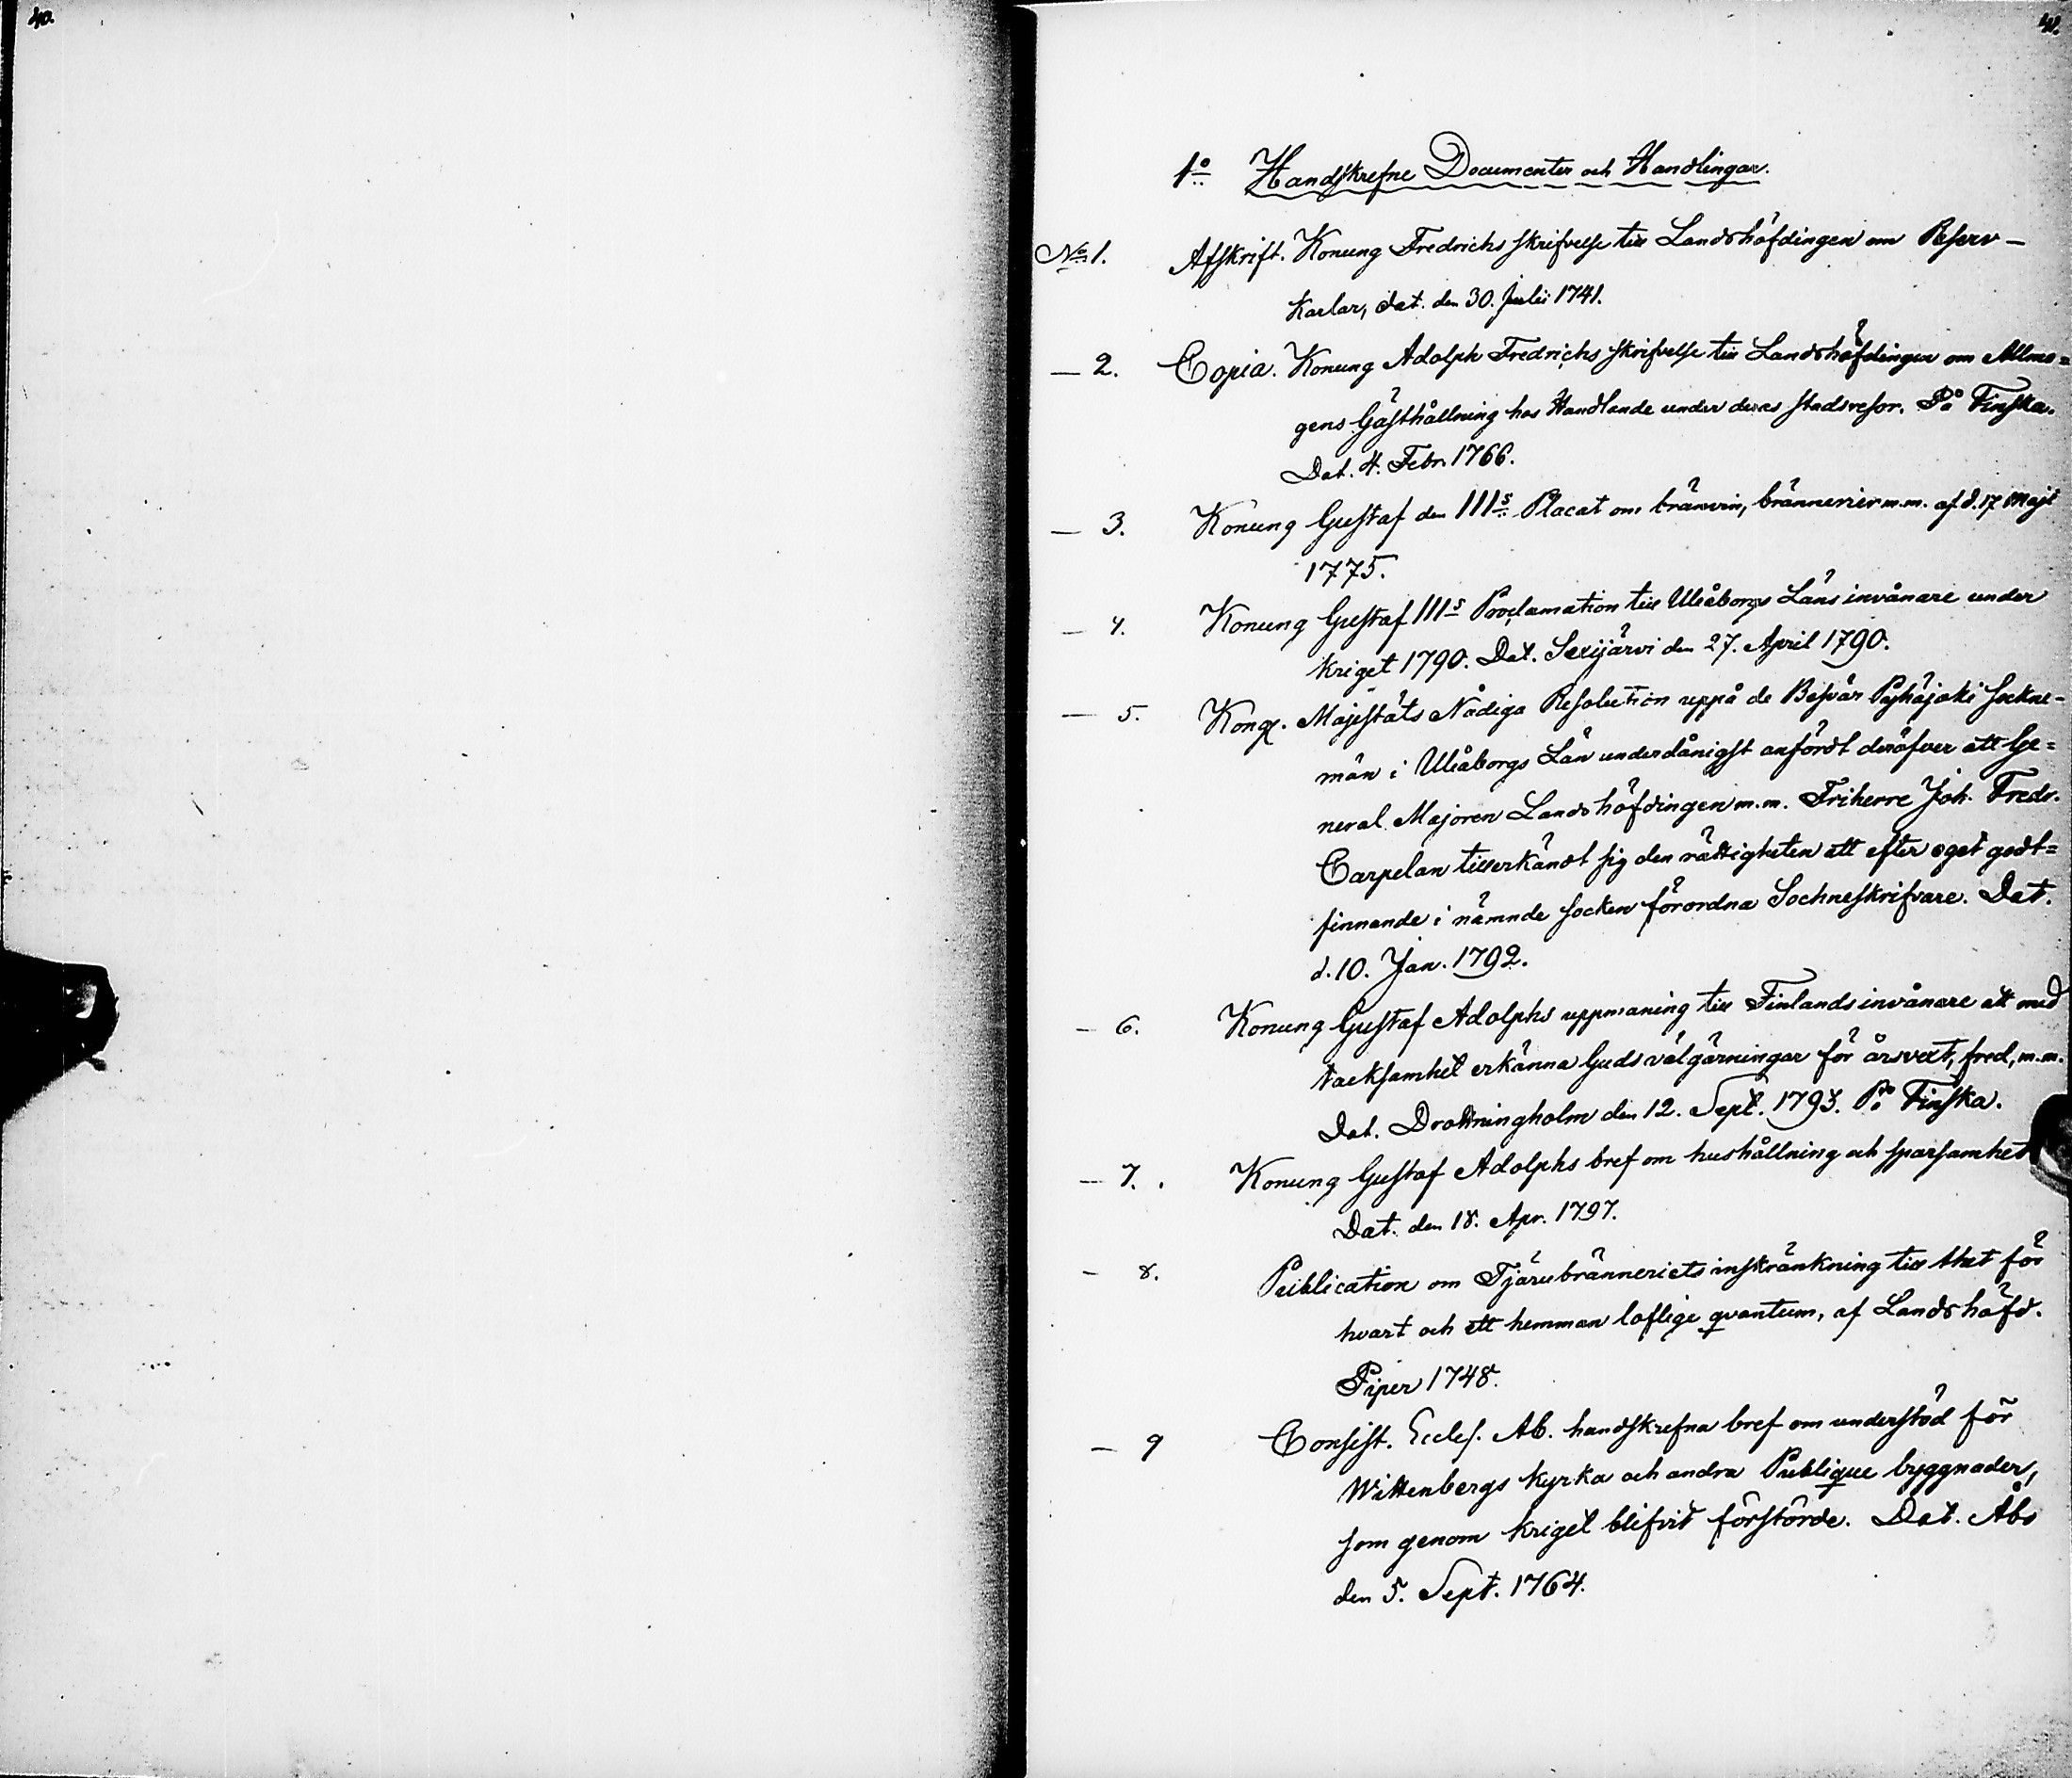 40.
41.
1º Handskrefne Documenter och Handlingar.
Nº 1. Afskrift. Konung Fredrichs skrifvelse till Landshöfdingen om Reserv-
karlar, dat. den 30. Julii 1741.
— 2. Copia. Konung Adolph Fredrichs skrifvelse till Landshöfdingen om Allmo=
gens Gästhållning hos Handlande under deras stadsresor. På Finska.
Dat. 4. Febr. 1766.
— 3. Konung Gustaf den IIIs Placat om bränvin, brännerier m.m. af d. 17 Maji
1775.
— 4. Konung Gustaf IIIs Proclamation till Uleåborgs Läns invånare under
kriget 1790. Dat. Sexijärvi den 27. April 1790.
— 5. Kongl. Majestäts Nådiga Resolution uppå de Besvär Pyhäjoki sockne-
män i Uleåborgs Län underdånigst anfördt deröfver att Ge=
neral Majoren Landshöfdingen m.m. Friherre Joh. Fredr.
Carpelan tillerkändt sig den rättigheten att efter eget godt=
finnande i nämnde socken förordna Sochneskrifvare. Dat.
d. 10. Jan. 1792.
— 6. Konung Gustaf Adolphs uppmaning till Finlands invånare att med
tacksamhet erkänna Guds välgärningar för årsvext, fred, m.m.
Dat. Drottningholm den 12. Sept. 1793. På Finska.
— 7. Konung Gustaf Adolphs bref om hushållning och sparsamhet
Dat. den 18. Apr. 1797.
— 8. Publication om Tjärubränneriets inskränkning till thet för
hvart och ett hemman loflige qvantum, af Landshöfd.
Piper 1748.
— 9 Consist. Eccles. Ab. handskrefna bref om understöd för
Wittenbergs kyrka och andra Publique byggnader,
som genom kriget blifvit förstörde. Dat. Åbo
den 5. Sept. 1764.